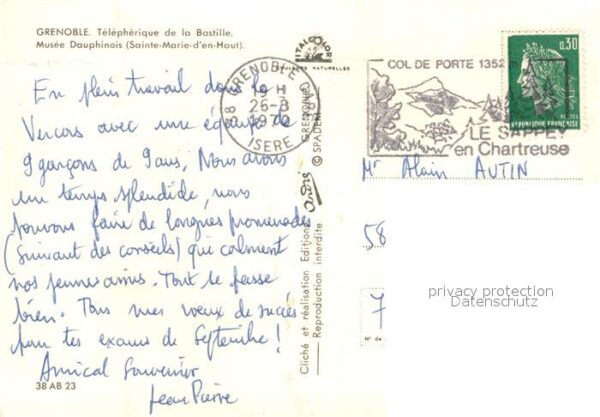 GRENOBLE. Téléphérique de la Bastille.
Musée Dauphinois (Sainte-Marie-d'en-Haut).
En plein travail dans le
Vercors avec une équipe de
9 garçons de 9 ans, Nous avons
un temps splendide, nous
pouvons faire de longues promenades
(suivant des conseils) qui calment
nos jeunes amis. Tout se passe
bien. Tous mes voeux de succès
pour tes exams de Septembre !
Amical Souvenir
Jean Pierre
38 AB 23
ITALCOLOR
COULEURS NATURELLES
38 GRENOBLE
19 H
26-8
1970
ISERE
GRENOBLE
© SPADEM
andré
Cliché et réalisation Editions
Reproduction interdite
COL DE PORTE 1352 m
LE SAPPEY
en Chartreuse
0,30
POSTES
REPUBLIQUE FRANCAISE
Mr Alain AUTIN
58
7
N° de
privacy protection
Datenschutz